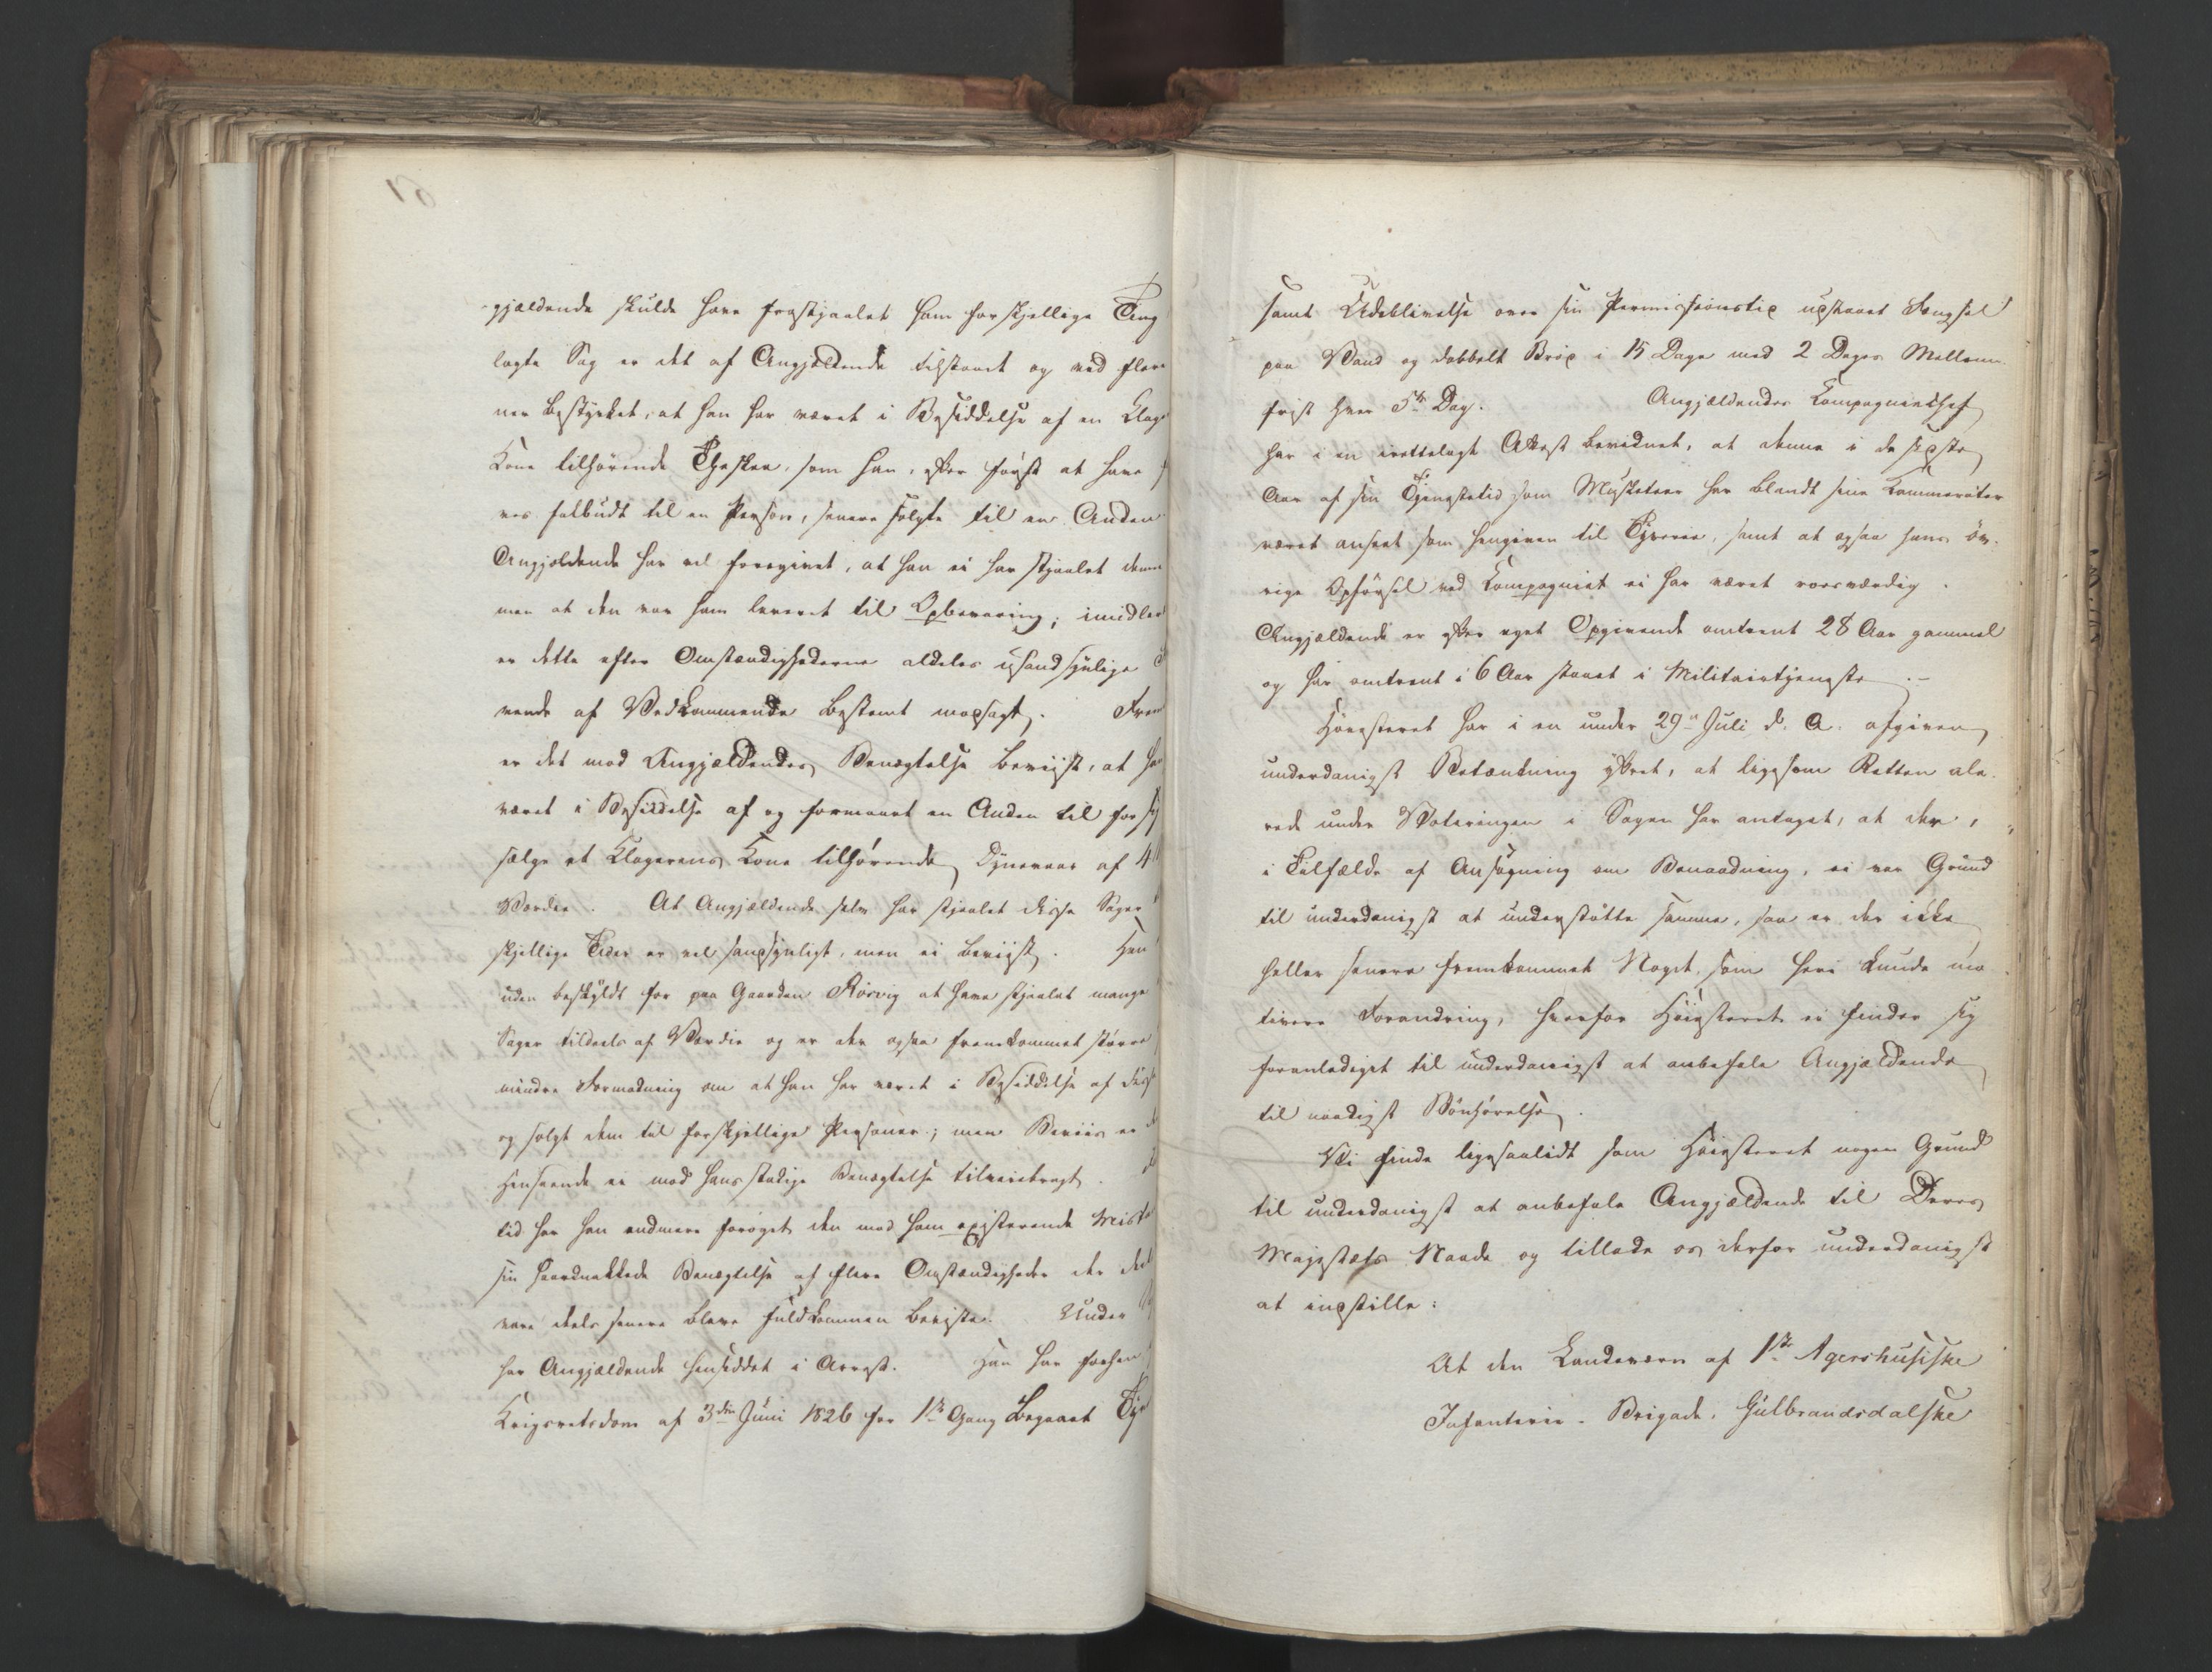 gjældende skulde have frastjaalet ham forskjellige Ting
lagte Sag er det af Angjældende tilstaaet og ved flere
ner bestyrket, at han har været i Besiddelse af en Klage
Kone tilhørende Theskee, som han, efter først at have
res falbudt til en Person, senere solgte til en Anden
Angjældende har vel foregivet, at han ei har stjaalet denne
men at den var ham leveret til Opbevaring; imidler
er dette efter Omstændighederne aldeles usandsynlige
vende af Vedkommende bestemt modsagt. Frem
er det mod Angjældendes Benægtelse beviist, at han
været i Besiddelse af og formaaet en Anden til for sig
sælge et Klagerens Kone tilhørende Dynevaar af 4
Værdie. At Angjældende selv har stjaalet disse Sager
skjellige Tider er vel sandsynligt, men ei beviist. Han
uden beskyldt for paa Gaarden Rösvig at have stjaalet mange
Sager tildeels af Værdie og er der ogsaa fremkommet større
mindre Formodning om at han har været i Besiddelse af disse
og solgt dem til forskjellige Personer; men Beviis er
Henseende ei mod hans stadige Benægtelse tilveiebragt.
tid har han endmere forøget den mod ham existerende Mista
sin haardnakkede Benægtelse af flere Omstændigheder der deels
vare deels senere bleve fuldkommen beviste. Under
har Angjældende hensiddet i Arrest. Han har forhen
Krigsretsdom af 3die Juni 1826 for 1ste Gang begaaet Tyv
samt Udeblivelse over sin Permissionstid udstaaet Fængsel
paa Vand og dobbelt Brød i 15 Dage med 2 Dages Mellem-
frist hver 5te Dag. Angjældendes Kompagniechef
har i en irettelagt Attest bevidnet, at denne i de sidste
Aar af sin Tjenestetid som Musketeer har blandt sine Kammerater
været anseet som hengiven til Tyverie, samt at ogsaa hans öv-
rige Opførsel ved Kompagniet ei har været roesværdig.
Angjældende er efter eget Opgivende omtrent 28 Aar gammel
og har omtrent i 6 Aar staaet i Militairtjeneste.-
Høiesteret har i en under 29de Juli d. A. afgiven
underdanigst Betænkning yttret, at ligesom Retten alle-
rede under Voteringen i Sagen har antaget, at der,
i Tilfælde af Ansøgning om Benaadning, ei var Grund
til underdanigst at understøtte samme, saa er der ikke
heller senere fremkommet Noget, som heri kunde mo-
tivere Forandring, hvorfor Høiesteret ei finder sig
foranlediget til underdanigst at anbefale Angjældende
til naadigst Bönhørelse.
Vi finde ligesaalidt som Høiesteret nogen Grund
til underdanigst at anbefale Angjældende til Deres
Majestæts Naade og tillade os derfor underdanigst
at indstille:
At den Landeværn af 1ste Agershusiske
Infanterie-Brigade, Gulbrandsdalske